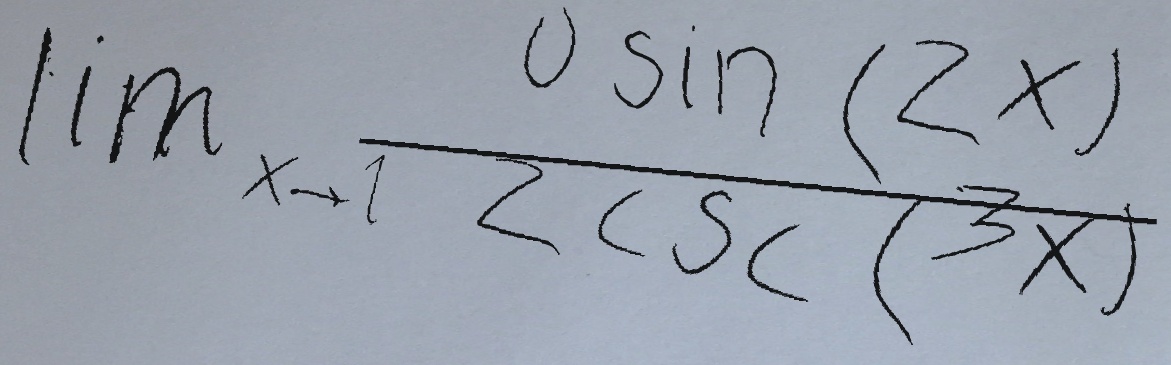 lim x→1 0 sin (2x) / 2 csc (3x)